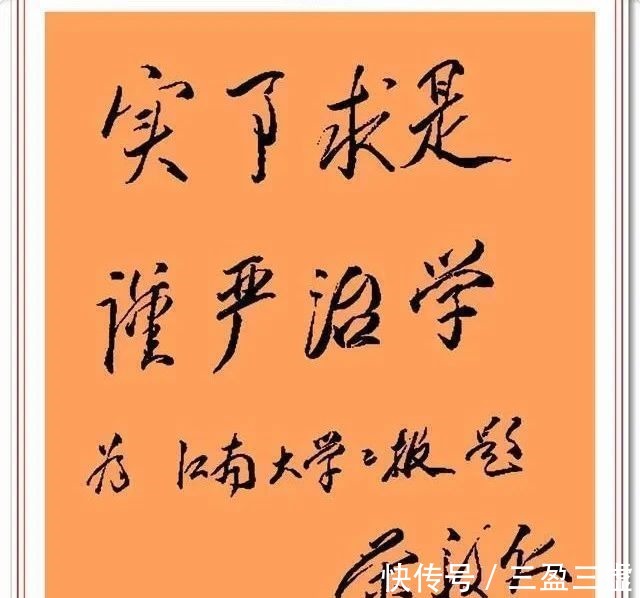 实事求是
谨严治学
为江南大学〻报题
荣毅仁
快传号/三盈三虚